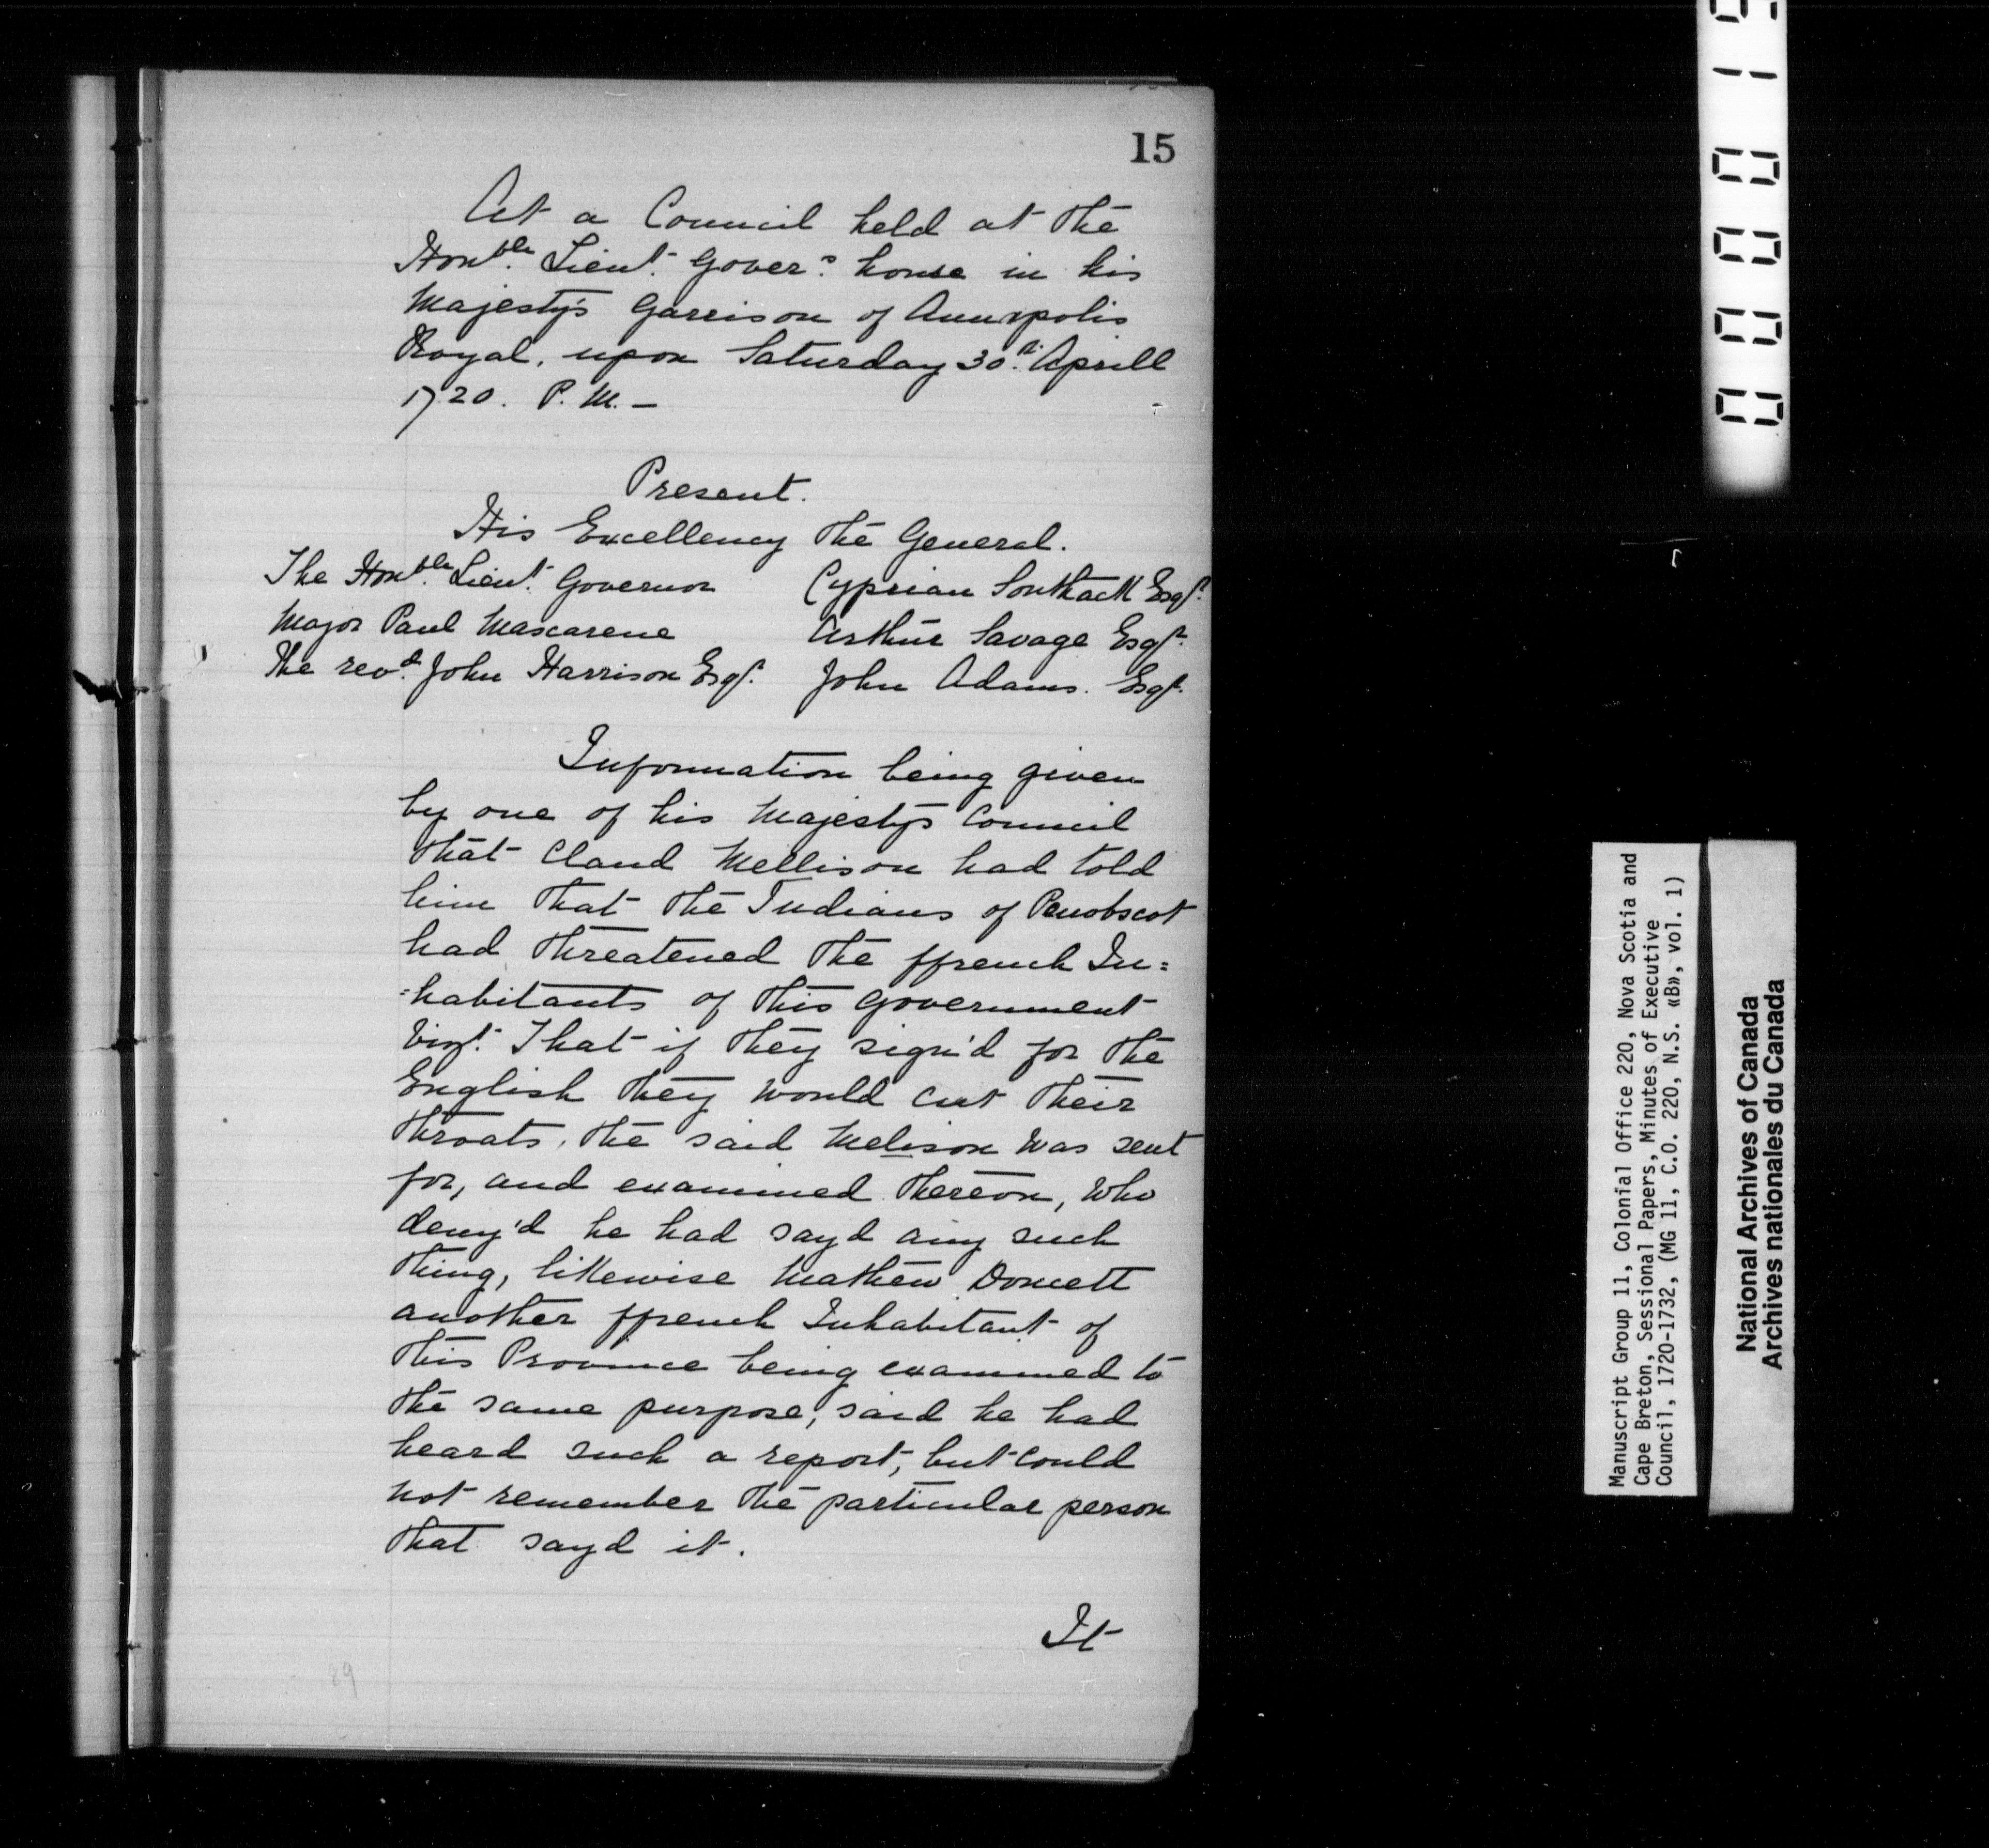 15
At a Council held at the
Honble. Lieut. Gover.s house in his
Majesty's Garrison of Annapolis
Royal, upon Saturday 30th. Aprill
1720. P.M. —
Present.
His Excellency the General.
The Honble. Lieut. Governor Cyprian Southack Esqr.
Major Paul Mascarene Arthur Savage Esqr.
The revd. John Harrison Esqr. John Adams. Esqr.
Information being given
by one of his Majestys Council
that Claud Mellison had told
him that the Indians of Penobscot
had threatened the ffrench In=
=habitants of this Government
Vizt. That if they sign'd for the
English they would cut their
throats, the said Melison was sent
for, and examined thereon, who
deny'd he had sayd any such
thing, likewise Mathew Doucett
another ffrench Inhabitant of
this Province being examined to
the same purpose, said he had
heard such a report, but could
not remember the particular person
that sayd it.
It
89
000015
Manuscript Group 11, Colonial Office 220, Nova Scotia and
Cape Breton, Sessional Papers, Minutes of Executive
Council, 1720-1732, (MG 11, C.O. 220, N.S. «B», vol. 1)
National Archives of Canada
Archives nationales du Canada